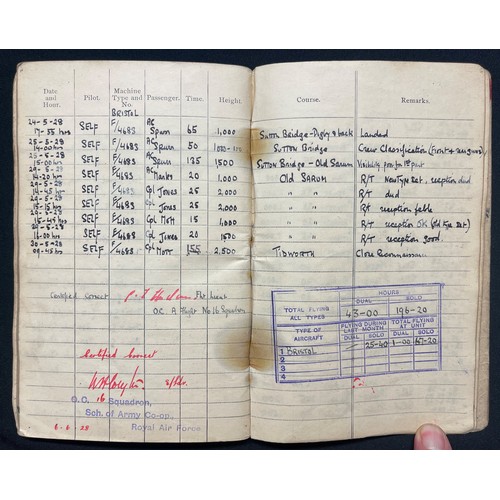 Date and Hour. Pilot. Machine Type and No. Passenger. Time. Height. Course. Remarks.
BRISTOL
24-5-28 17-55 hrs SELF F/4683 AC Spurn 65 1,000 Sutton Bridge - Digby & back Landed
25-5-28 14-00 hrs SELF F/4683 AC Spurn 50 Sutton Bridge Crew Classification (Front & rear guns)
15-00 hrs SELF F/4683 AC Spurn 135 1500 Sutton Bridge - Old Sarum Visibility poor for 1st part
29-5-28 14-20 hrs SELF F/4683 AC Manks 20 1,000 Old Sarum R/T New Type Set. reception dud
29-5-28 14-45 hrs SELF F/4683 Cpl Jones 25 2,000 " " R/T dud
29-5-28 15-15 hrs SELF F/4683 Cpl Jones 25 2,000 " " R/T reception feeble
29-5-28 15-45 hrs SELF F/4683 Cpl Mott 15 1,000 " " R/T reception OK (Old Type Set.)
29-5-28 16-00 hrs SELF F/4683 Cpl Jones 20 1500 " " R/T reception Good.
30-5-28 09-45 hrs SELF F/4683 Cpl Mott 155 2,500 Tidworth Close Reconnaissance
Certified correct Flt Lieut
O.C. A Flight No 16 Squadron
Certified Correct
S/Ldr.
O.C. 16 Squadron,
Sch. of Army Co-op,
Royal Air Force.
6-6-28
TOTAL FLYING ALL TYPES
HOURS
DUAL SOLO
43-00 196-20
TYPE OF AIRCRAFT
FLYING DURING LAST MONTH
TOTAL FLYING AT UNIT
DUAL SOLO DUAL SOLO
1 BRISTOL 25-40 1-00 67-20
2
3
4